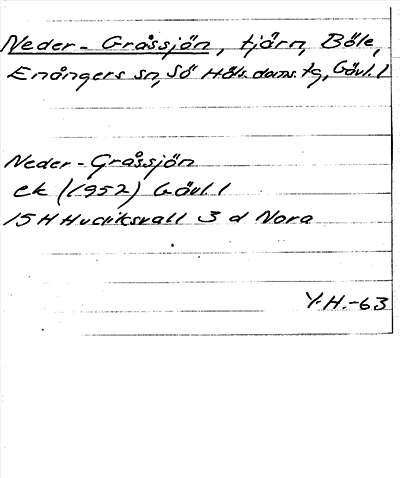 Neder-Gråssjön, tjärn, Böle,
Enångers sn, Sö Häls. doms. tg, Gävl. l
Neder-Gråssjön
ek (1952) Gävl. l
15 H Hudiksvall 3 d Nora
Y.H.-63